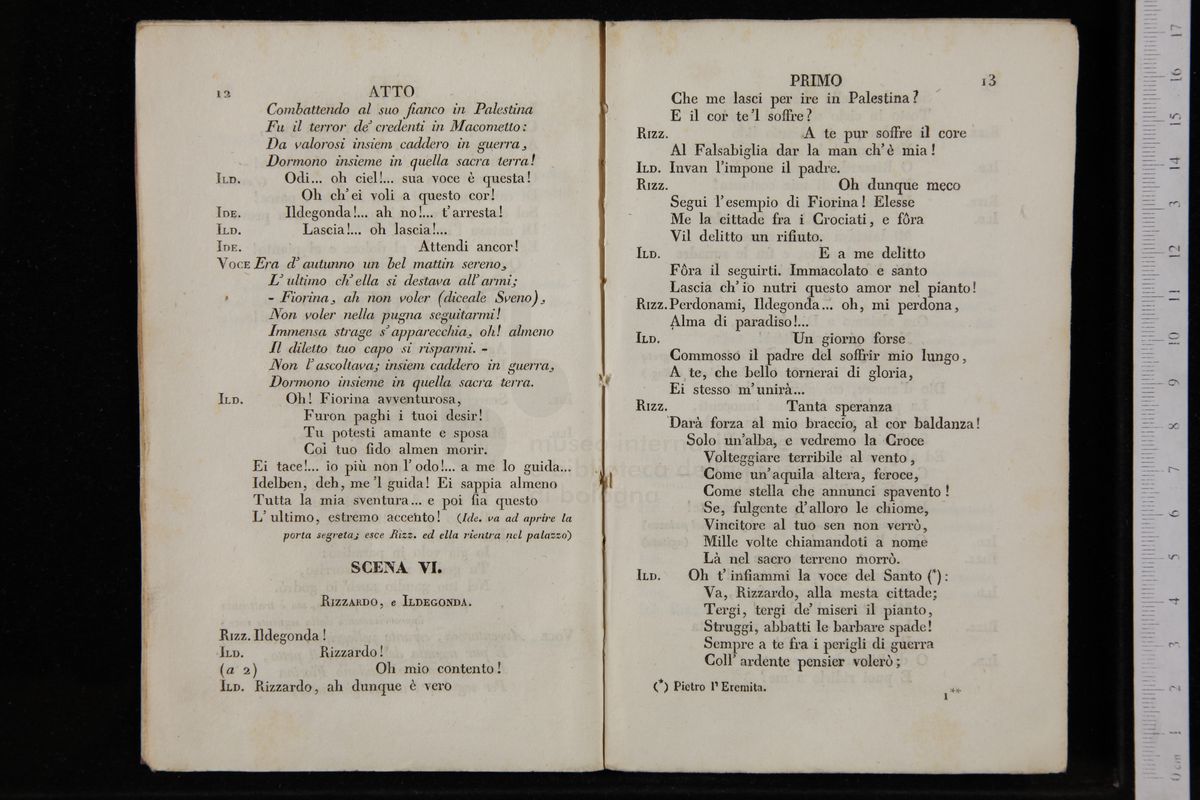 12 ATTO
Combattendo al suo fianco in Palestina
Fu il terror de' credenti in Macometto:
Da valorosi insiem caddero in guerra,
Dormono insieme in quella sacra terra!
ILD. Odi... oh ciel!... sua voce è questa!
Oh ch'ei voli a questo cor!
IDE. Ildegonda!... ah no!... t'arresta!
ILD. Lascia!... oh lascia!...
IDE. Attendi ancor!
VOCE Era d'autunno un bel mattin sereno,
L'ultimo ch'ella si destava all'armi;
- Fiorina, ah non voler (diceale Sveno),
Non voler nella pugna seguitarmi!
Immensa strage s'apparecchia, oh! almeno
Il diletto tuo capo si risparmi. -
Non l'ascoltava; insiem caddero in guerra,
Dormono insieme in quella sacra terra.
ILD. Oh! Fiorina avventurosa,
Furon paghi i tuoi desir!
Tu potesti amante e sposa
Col tuo fido almen morir.
Ei tace!... io più non l'odo!... a me lo guida...
Idelben, deh, me 'l guida! Ei sappia almeno
Tutta la mia sventura... e poi fia questo
L'ultimo, estremo accento! (Ide. va ad aprire la
porta segreta; esce Rizz. ed ella rientra nel palazzo)
SCENA VI.
RIZZARDO, e ILDEGONDA.
RIZZ. Ildegonda!
ILD. Rizzardo!
(a 2) Oh mio contento!
ILD. Rizzardo, ah dunque è vero
PRIMO 13
Che me lasci per ire in Palestina?
E il cor te 'l soffre?
RIZZ. A te pur soffre il core
Al Falsabiglia dar la man ch'è mia!
ILD. Invan l'impone il padre.
RIZZ. Oh dunque meco
Segui l'esempio di Fiorina! Elesse
Me la cittade fra i Crociati, e fôra
Vil delitto un rifiuto.
ILD. E a me delitto
Fôra il seguirti. Immacolato e santo
Lascia ch'io nutri questo amor nel pianto!
RIZZ. Perdonami, Ildegonda... oh, mi perdona,
Alma di paradiso!...
ILD. Un giorno forse
Commosso il padre del soffrir mio lungo,
A te, che bello tornerai di gloria,
Ei stesso m'unirà...
RIZZ. Tanta speranza
Darà forza al mio braccio, al cor baldanza!
Solo un'alba, e vedremo la Croce
Volteggiare terribile al vento,
Come un'aquila altera, feroce,
Come stella che annunci spavento!
Se, fulgente d'alloro le chiome,
Vincitore al tuo sen non verrò,
Mille volte chiamandoti a nome
Là nel sacro terreno morrò.
ILD. Oh t'infiammi la voce del Santo (*):
Va, Rizzardo, alla mesta cittade;
Tergi, tergi de' miseri il pianto,
Struggi, abbatti le barbare spade!
Sempre a te fra i perigli di guerra
Coll'ardente pensier volerò;
(*) Pietro l'Eremita.
1**